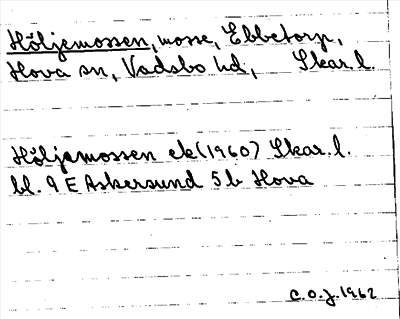 Höljemossen, mosse, Ebbetorp,
Hova sn, Vadsbo hd, Skar. l.
Höljemossen ek (1960) Skar. l.
bl. 9 E Askersund 5 b Hova
C.O.J. 1962